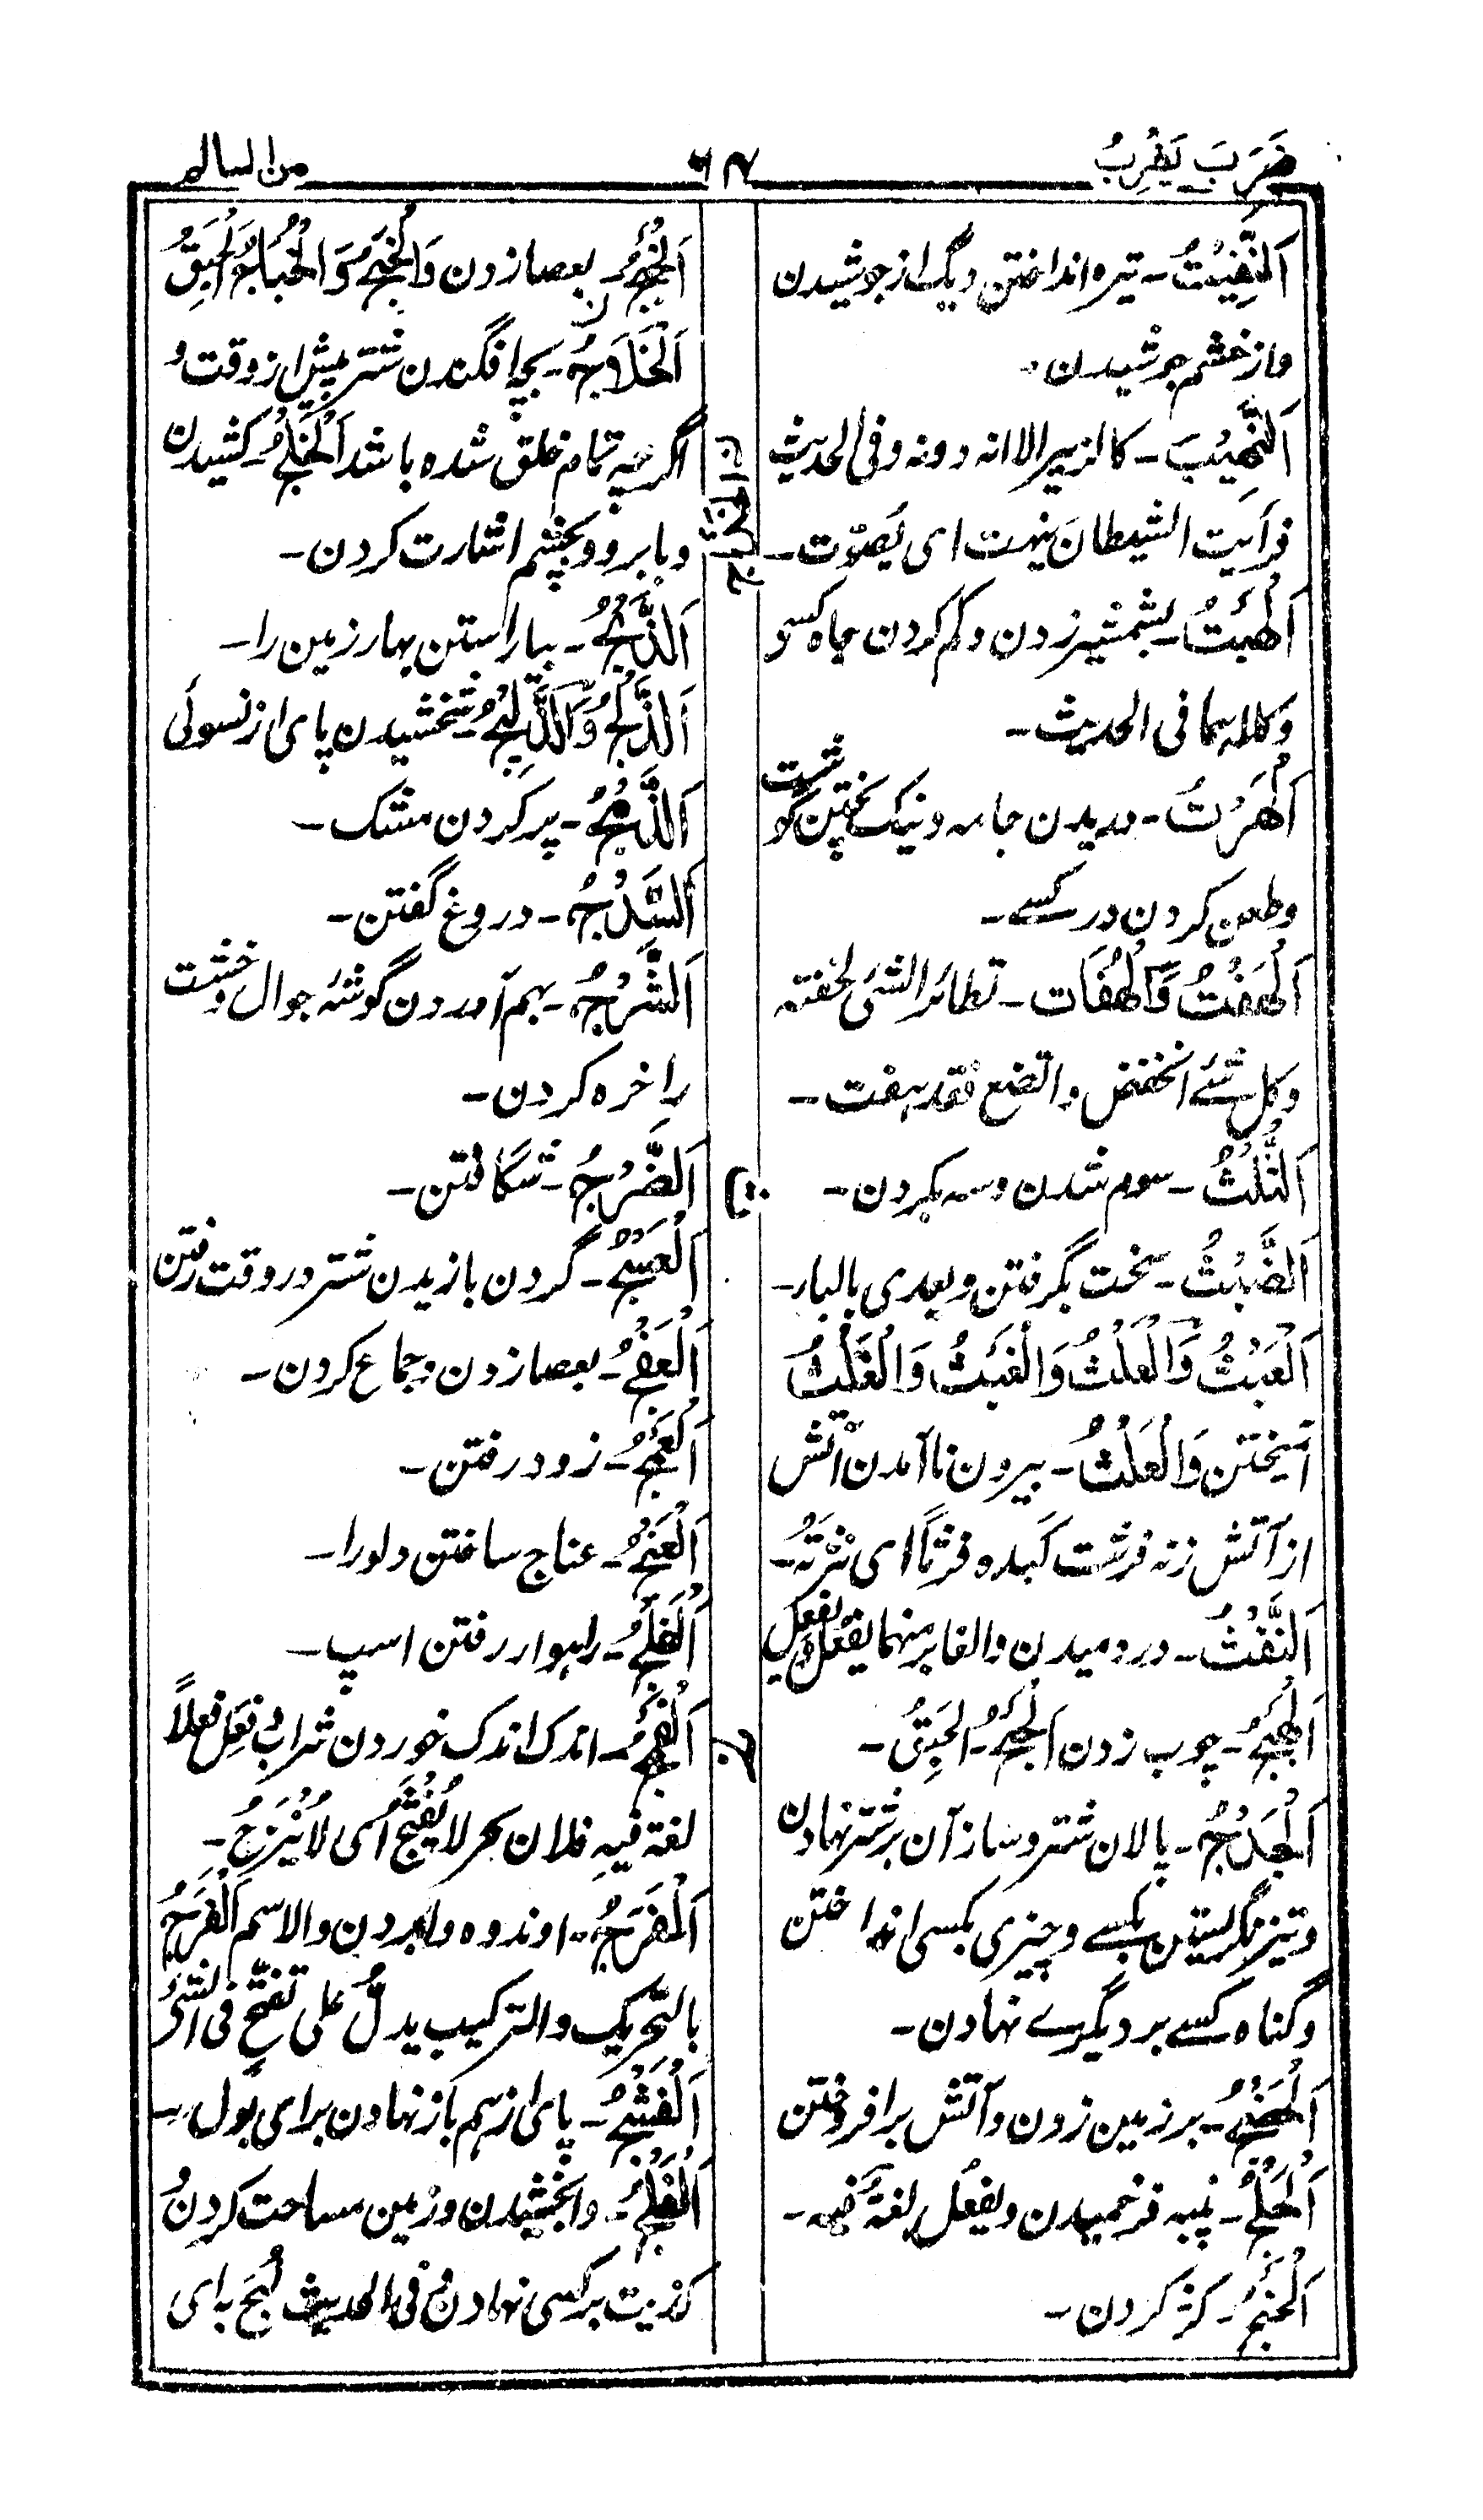 ضَرَبَ يَضْرِبُ
۶۴
من السالم
اَلنَّفِيْتُ - تیره انداختن دیگ از جوشیدن
و از خشم جوشیدن -
اَلنَّهِيْتُ - کالزبیر الا انه دونه و فی الحدیث
فرأیت الشیطان ینهت ای یُصوّت -
اَلْهَبْتُ - بشمشیر زدن و کم کردن جاه کسی
و کلاهما فی الحدیث -
اَلْهَرْتُ - دریدن جامه و نیک پختن گوشت
و طعن کردن در کسے -
اَلْهَفْتُ وَالْهُفَات - تطائر الشئ لخفته
و کل شئے انخفض و اتضع فقد هفت -
ث
اَلثَّلْثُ - سوم شدن و سه یکردن -
اَلضَّبْثُ - سخت بگرفتن و یعدی بالباء -
اَلْعَبْثُ وَالْعَلْثُ وَالْغَبْثُ وَالْغَلْثُ
آمیختن وَالْعَلْثُ - بیرون نا آمدن آتش
از آتش زنه فرثت کبده فرثًا ای نثرتُه -
اَلنَّفْثُ - در دمیدن و الغابر منهما یفعُل و یفعِل
ج
چوب زدن اَلْحَبْجُ - الحَبِقُ -
اَلْحَدْجُ - پالان شتر و ساز آن بر شتر نهادن
و تیز نگریستن بکسے و چیزی بکسی انداختن
و گناه کسے بر دیگرے نهادن -
اَلْحَضْجُ - بر زمین زدن و آتش برافروختن
اَلْحَلْجُ - پنبه فرخمیدن و یفعُل لغةٌ فیه -
اَلْحَنْجُ - کژ کردن -
اَلْخَبْجُ - بعصا زدن وَالْخَبْجُ وَالْخُبَاجُ الْحَبِقُ
اَلْخَلَاجُ - بچه افگندن شتر پیش از وقت و
اگرچه تمام خلق شده باشد اَلْخَلْجُ - کشیدن
و بابرو و بچشم اشارت کردن -
اَلدَّبْجُ - بیاراستن بهار زمین را -
اَلدَّلْجُ وَالدَّلِيْجُ -
پر کردن مشک -
اَلسَّدْجُ - دروغ گفتن -
اَلشَّرْجُ - بهم آوردن گوشۀ جوال و خشت
را خره کردن -
اَلضَّرْجُ - شگافتن -
اَلْعَسْجُ - گردن بازیدن شتر در وقت رفتن
اَلْعَفْجُ - بعصا زدن و جماع کردن -
اَلْعَمْجُ - زود رفتن -
اَلْعَنْجُ - عناج ساختن دلو را -
راهوار رفتن اسپ -
اندک اندک خوردن شراب و فَعِل فعلاً
لغة فیهِ فلان بحر لا یُفْثَجُ ای لا یُنْزَحُ -
اَلْفَرْجُ - اندوه وا بردن والاسم اَلْفَرَجُ
بالتحریک والترکیب یدلُّ علی تفتّحٍ فی الشئ
اَلْفَشْجُ - پای از هم باز نهادن برای بول -
اَلْفَلْجُ - وا بخشیدن و زمین مساحت کردن و
گزیت بر کسی نهادن و فی الحدیث